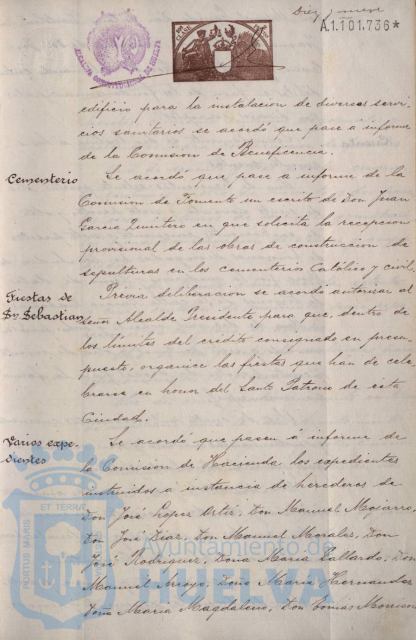 Diez y nueve
A.1.101.736*
edificio para la instalacion de diversos servi-
cios sanitarios se acordó que pase á informe
de la Comision de Beneficencia.
Cementerio
Se acordó que pase a informe de la
Comision de Fomento un escrito de Don Juan
García Quintero en que solicita la recepcion
provisional de las obras de construccion de
sepulturas en los cementerios Católico y civil.
Fiestas de
Sn Sebastian
Previa deliberacion se acordó autorizar al
señor Alcalde Presidente para que, dentro de
los límites del crédito consignado en presu-
puesto, organice las fiestas que han de cele-
brarse en honor del Santo Patrono de esta
Ciudad.
Varios expe-
dientes
Se acordó que pasen á informe de
la Comision de Hacienda los expedientes
instruidos á instancia de herederos de
Don José Lopez Ortiz, Don Manuel Mojarro,
Don José Diaz, Don Manuel Morales, Don
José Rodriguez, Doña Maria Gallardo, Don
Manuel Arroyo, Doña Maria Hernandez
Doña Maria Magdaleno, Don Tomas
PORTUS MARIS
ET TERRAE
Ayuntamiento de
HUELVA